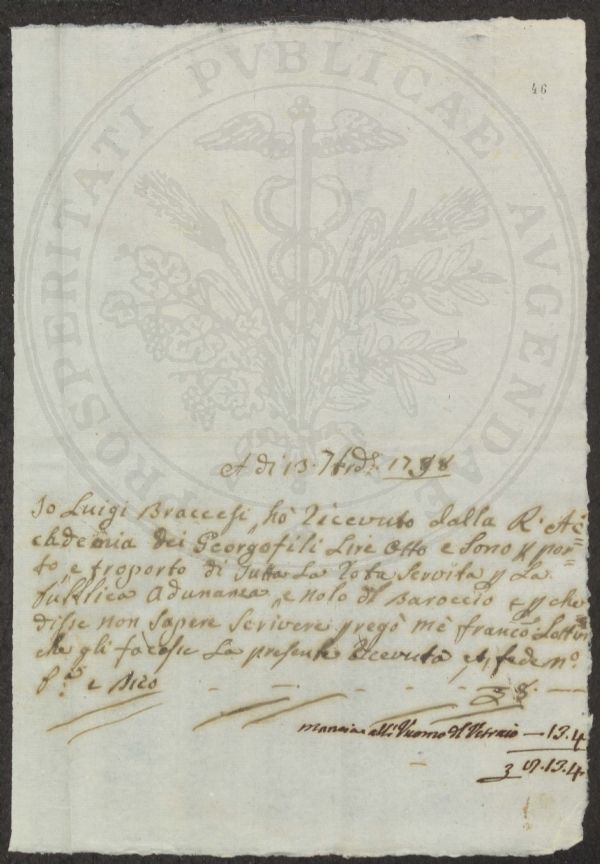 46
PROSPERITATI PVBLICAE AVGENDAE
A di 13. 7bre 1798
Io Luigi Braccesi, hò ricevuto dalla R. Ac=
cademia dei Georgofili Lire Otto e Sono p por=
to e troporto di Tutta La Servita p La
Pubblica Adunanza, e nolo dl Baroccio e p che
disse non Sapere Scrivere pregò mè Franco
che gli facesse La presente Ricevuta
8. —
mancia all' Vuomo dl Vetraio — 13.4
13.4